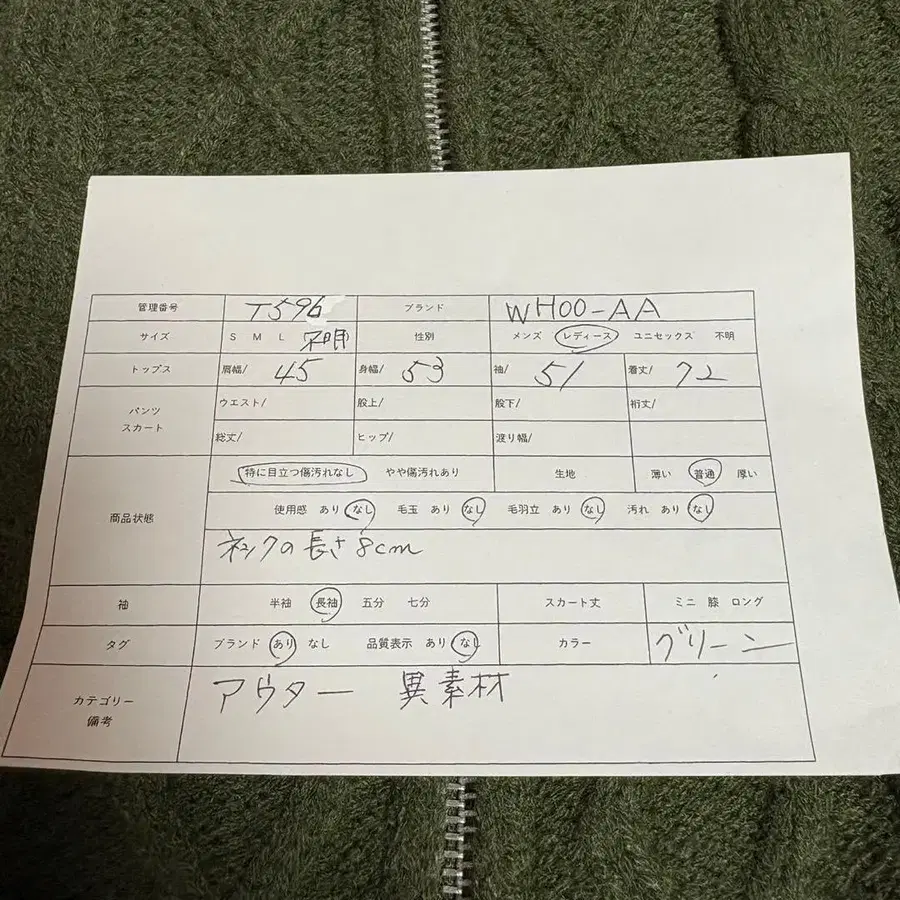 管理番号 T596 ブランド WHOO-AA
サイズ S M L 不明 性別 メンズ レディース ユニセックス 不明
トップス 肩幅/ 45 身幅/ 53 袖/ 51 着丈/ 72
パンツ スカート ウエスト/ 股上/ 股下/ 裄丈/
総丈/ ヒップ/ 渡り幅/
商品状態 特に目立つ傷汚れなし やや傷汚れあり 生地 薄い 普通 厚い
使用感 あり なし 毛玉 あり なし 毛羽立 あり なし 汚れ あり なし
ネックの長さ8cm
袖 半袖 長袖 五分 七分 スカート丈 ミニ 膝 ロング
タグ ブランド あり なし 品質表示 あり なし カラー グリーン
カテゴリー 備考 アウター 異素材